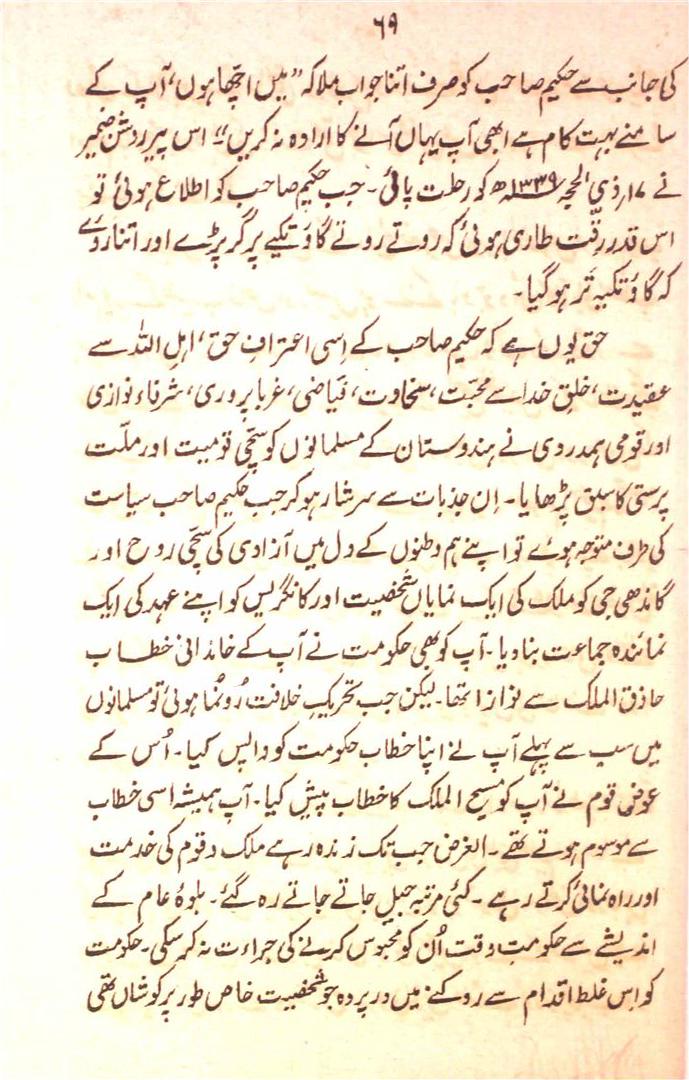 ۶۹
کی جانب سے حکیم صاحب کو صرف اتنا جواب ملا کہ ”میں اچّھا ہوں، آپ کے
سامنے بہت کام ہے ابھی آپ یہاں آنے کا ارادہ نہ کریں“ اس پیر روشن ضمیر
نے ۱۷؍ ذی الحجہ ۱۳۳۹ھ کو رحلت پائی۔ جب حکیم صاحب کو اطلاع ہوئی تو
اس قدر رِقّت طاری ہوئی کہ روتے روتے گاؤ تکیے پر گر پڑے اور اتنا روئے
کہ گاؤ تکیہ تَر ہو گیا۔
حق یوں ہے کہ حکیم صاحب کے اِسی اعترافِ حق، اہل اللہ سے
عقیدت، خلقِ خدا سے محبّت، سخاوت، فیّاضی، غربا پروری، شرفاء نوازی
اور قومی ہمدردی نے ہندوستان کے مسلمانوں کو سچّی قومیت اور ملّت
پرستی کا سبق پڑھایا۔ اِن جذبات سے سرشار ہو کر جب حکیم صاحب سیاست
کی طرف متوجہ ہوئے تو اپنے ہم وطنوں کے دل میں آزادی کی سچّی روح اور
گاندھی جی کو ملک کی ایک نمایاں شخصیت اور کانگریس کو اپنے عہد کی ایک
نمائندہ جماعت بنا دیا۔ آپ کو بھی حکومت نے آپ کے خاندانی خطاب
حاذق الملک سے نوازا تھا۔ لیکن جب تحریکِ خلافت رُونُما ہوئی تو مسلمانوں
میں سب سے پہلے آپ نے اپنا خطاب حکومت کو واپس کیا۔ اُس کے
عوض قوم نے آپ کو مسیح الملک کا خطاب پیش کیا۔ آپ ہمیشہ اسی خطاب
سے موسوم ہوتے تھے۔ الغرض جب تک زندہ رہے ملک و قوم کی خدمت
اور راہ نمائی کرتے رہے۔ کئی مرتبہ جیل جاتے جاتے رہ گئے۔ بلوۂ عام کے
اندیشے سے حکومتِ وقت اُن کو محبوس کرنے کی جراءت نہ کر سکی۔ حکومت
کو اِس غلط اقدام سے روکنے میں در پردہ جو شخصیت خاص طور پر کوشاں تھی